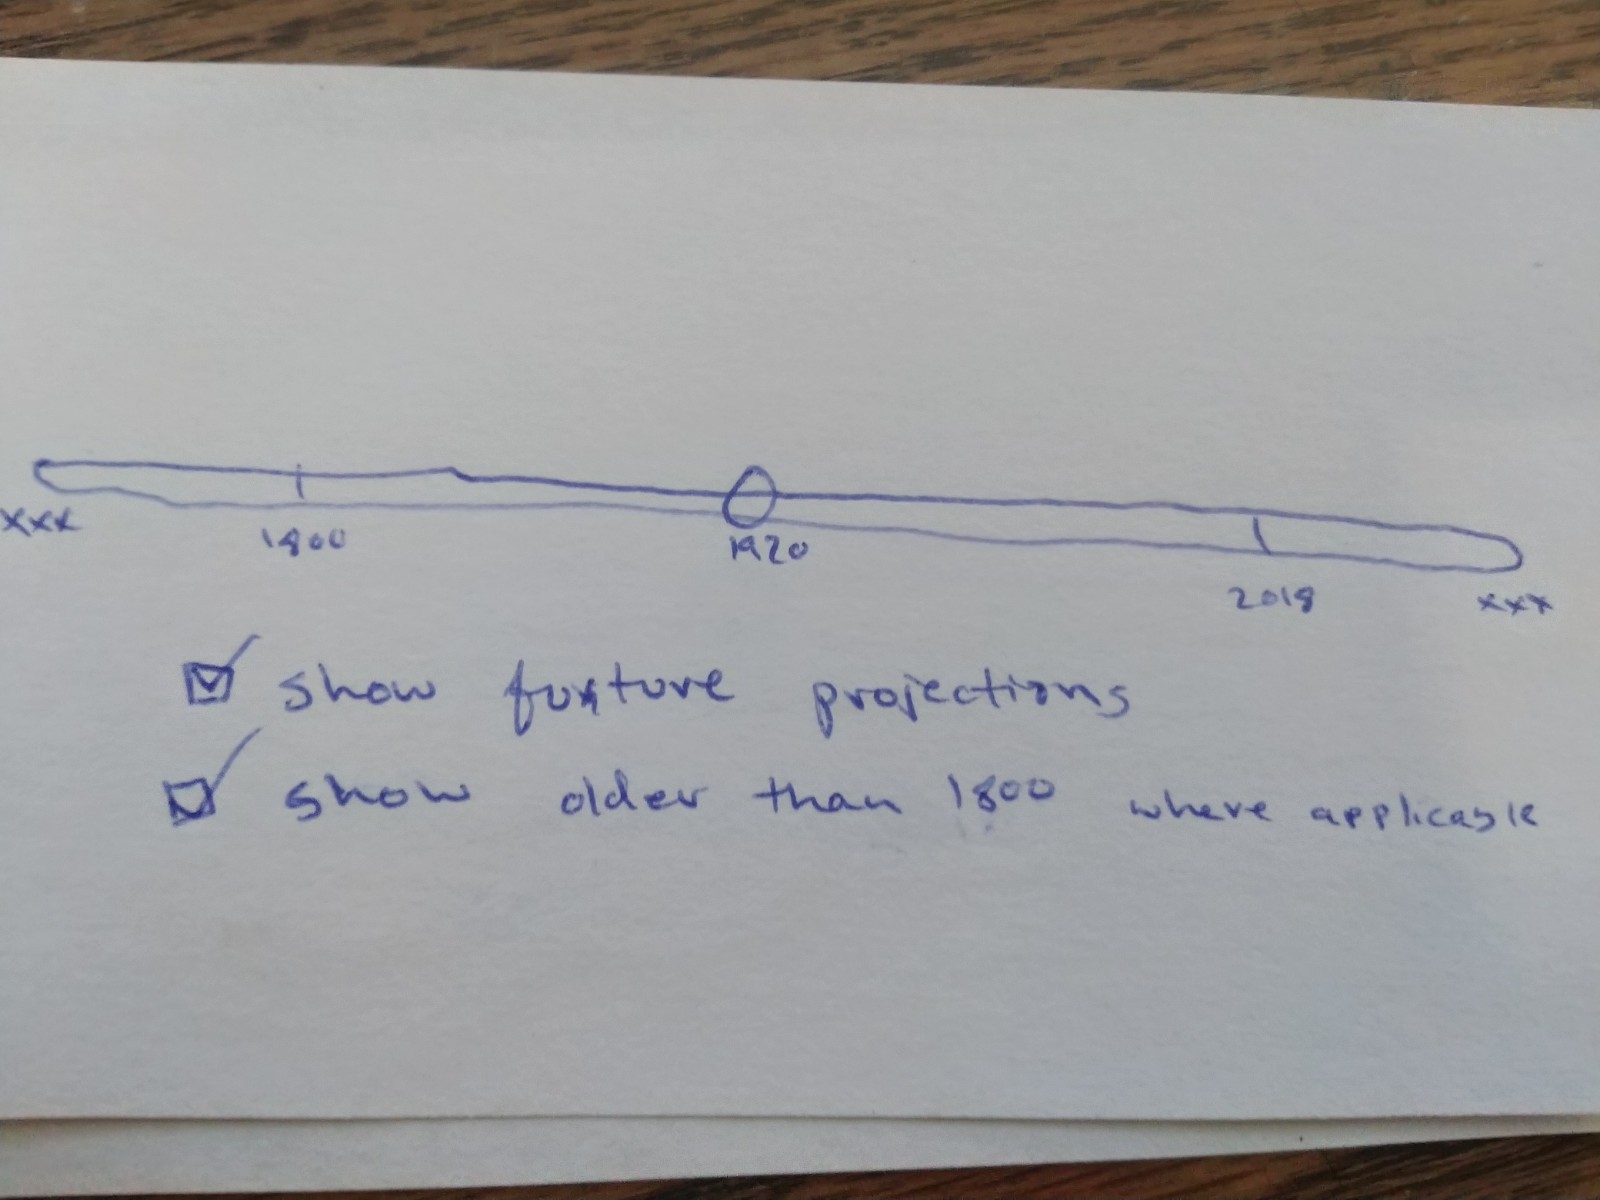 xxx 1800 1920 2018 xxx
show fuxture projections
show older than 1800 where applicable